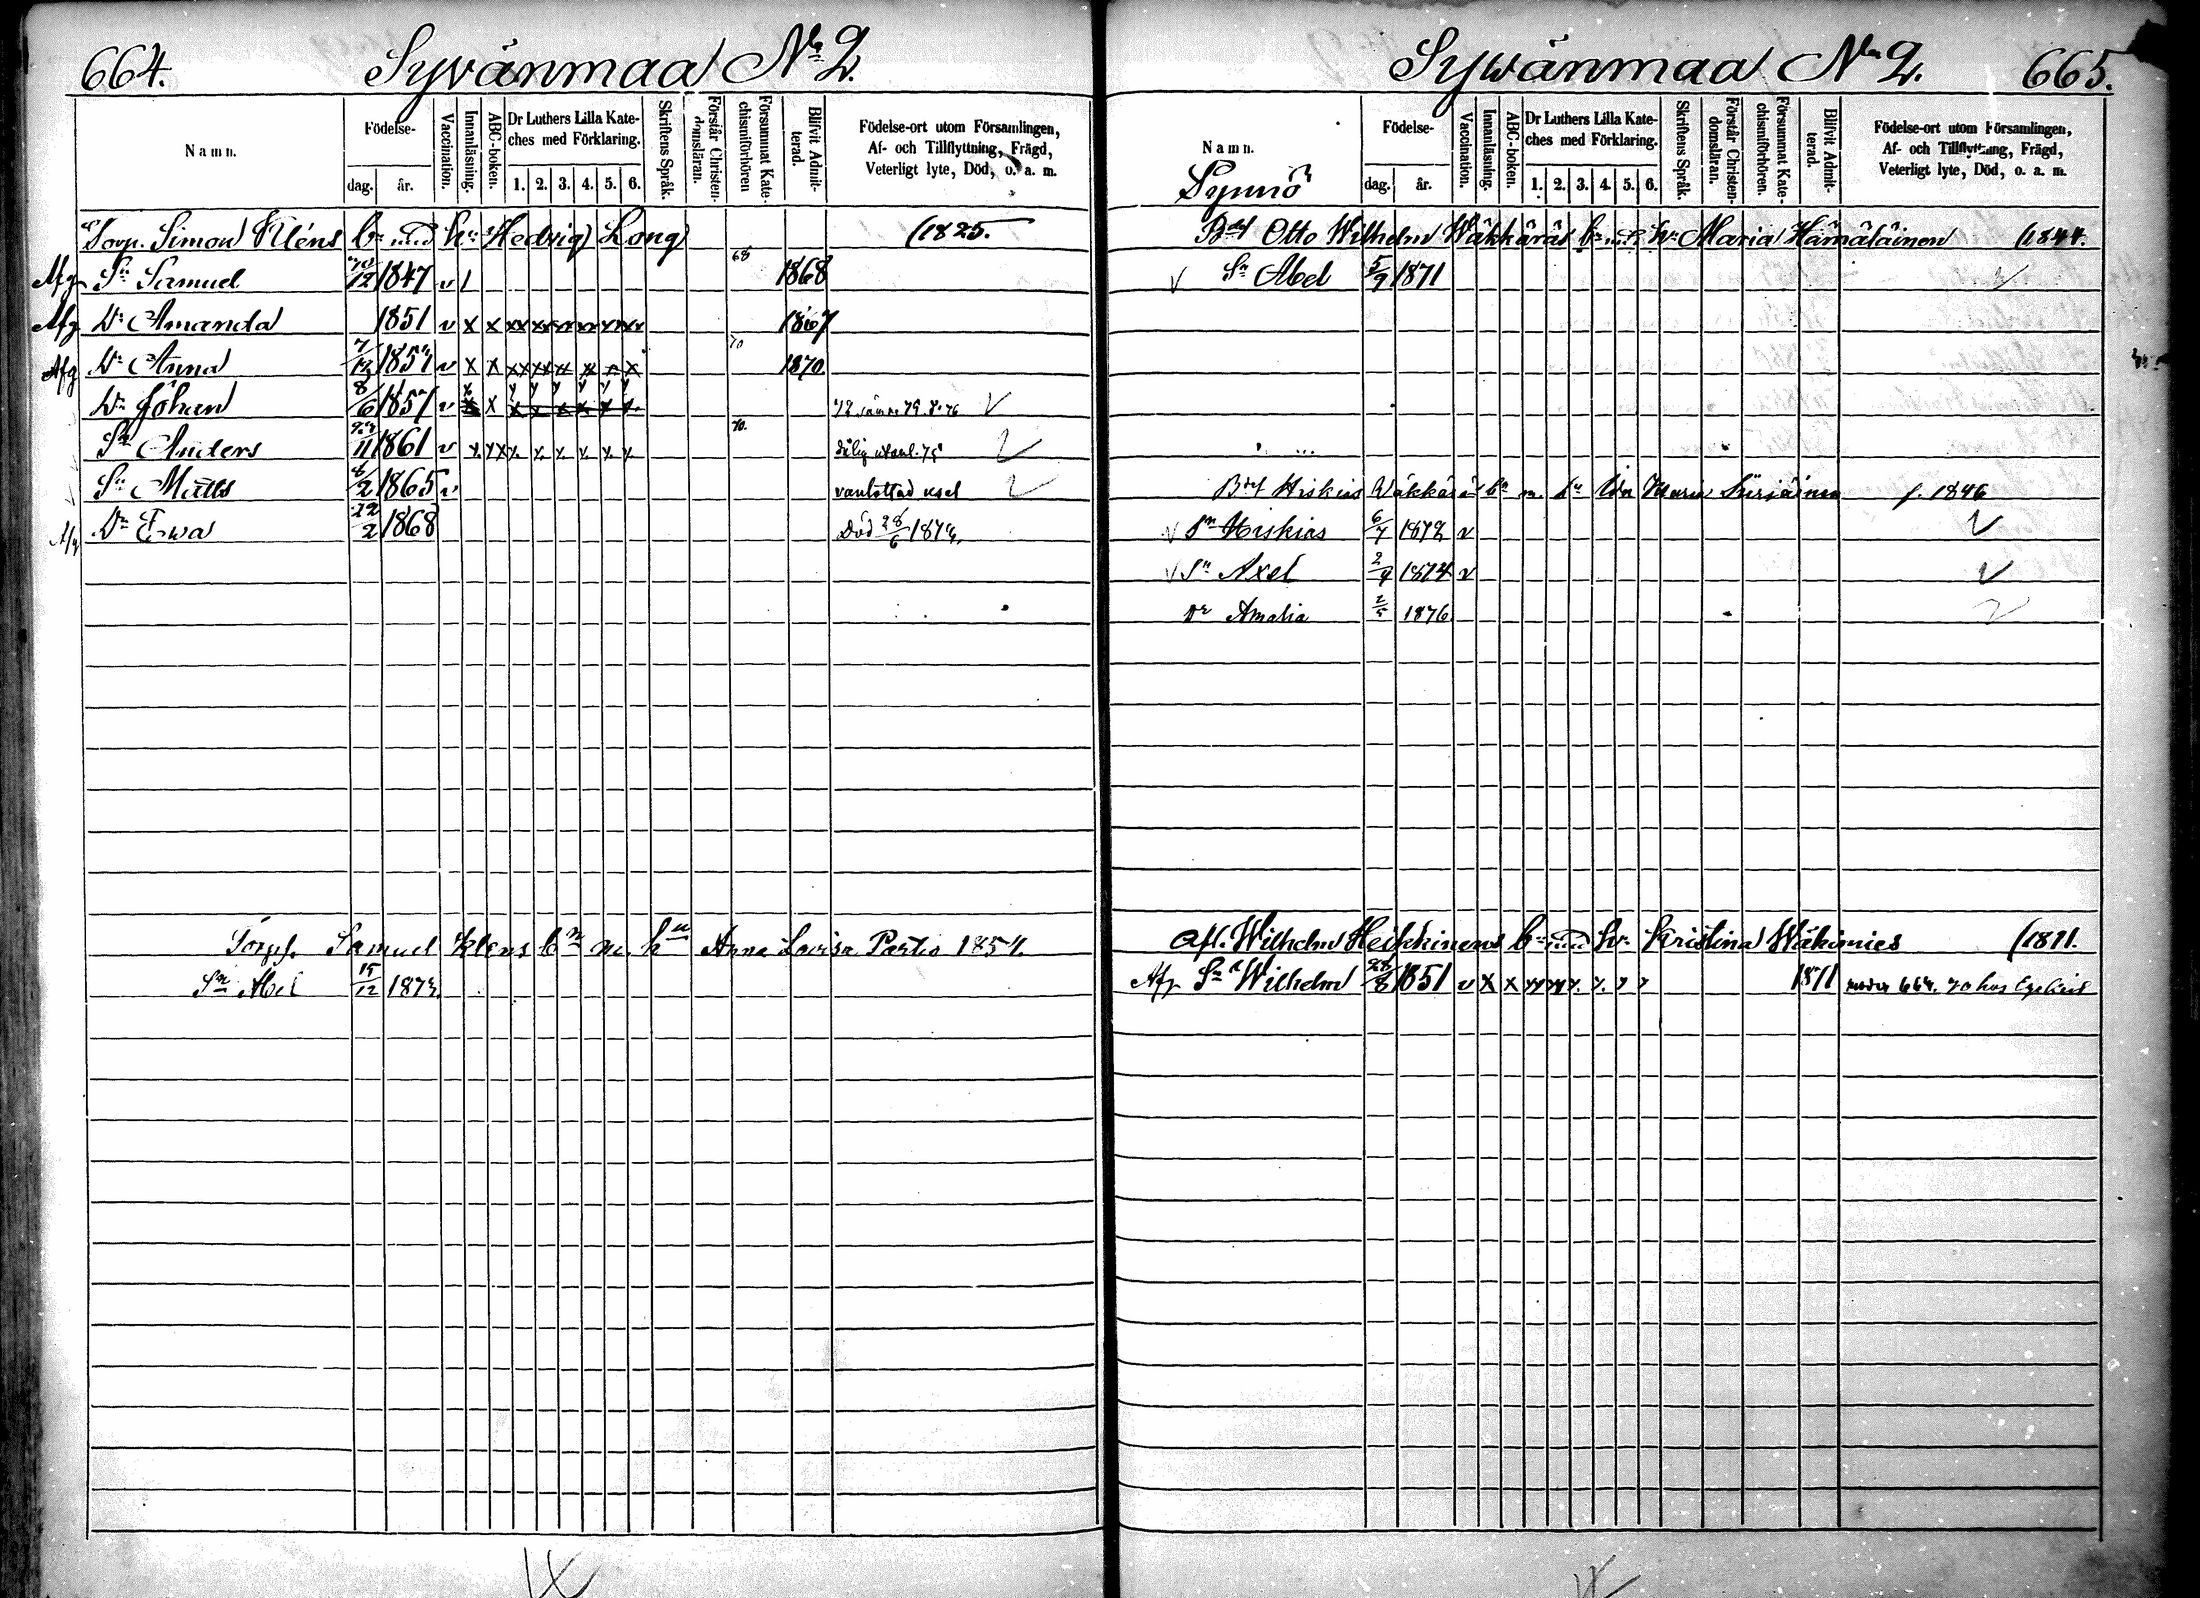 664.
Syvänmaa No 2.
Namn.
Födelse-
dag. år.
Vaccination.
Innanläsning.
ABC-boken.
Dr Luthers Lilla Kate-
ches med Förklaring.
1. 2. 3. 4. 5. 6.
Skriftens Språk.
Förstår Christen-
domsläran.
Försummat Kate-
chismiförhören
Blifvit Admit-
terad.
Födelse-ort utom Församlingen,
Af- och Tillflyttning, Frägd,
Veterligt lyte, Död, o. a. m.
Torp. Simon Kléns bn med hu Hedvig Long (1825.
Afg Sn Samuel 12 1847 v 1 68 1868
Afg Dr Amanda 1851 v x x xx xx xx xx xx xx 1867
Afg Dr Anna 1854 v x x xx xx xx xx x x 70 1870
Johan 8/6 1857 v x x x x x x x x
Sn Anders 11 1861 v x xx x. x x x x x 70. dålig 75
Sn Matts 8/2 1865 v vanlottad usel
Afg Dr Ewa 22/2 1868 Död 28/6 1873.
Torp. Samuel Klens bn m. hu Anna Lovisa Partio 1854.
Sn Abel 15/12 1873.
Sywänmaa No 2. 665.
Namn.
Synnö
Födelse-
dag. år.
Vaccination.
Innanläsning.
ABC-boken.
Dr Luthers Lilla Kate-
ches med Förklaring.
1. 2. 3. 4. 5. 6.
Skriftens Språk.
Förstår Christen-
domsläran.
Försummat Kate-
chismiförhören.
Blifvit Admit-
terad.
Födelse-ort utom Församlingen,
Af- och Tillflyttning, Frägd,
Veterligt lyte, Död, o. a. m.
Otto Wilhelm Wäkkäräs bn m. hu Maria Hämäläinen (1844.
v Sn Abel 5/9 1871
Hiskias Wäkkärä bn m. hu Maria f. 1846
v Sn Hiskias 6/7 1872 v
v Sn Axel 1874 v
Dr Amalia 2/5 1876
Afl. Wilhelm Heikkinens bn med hu Kristina Wäkimies (1811.
Afg Sn Wilhelm 28/8 1851 v x x 1871 664. 70 hos